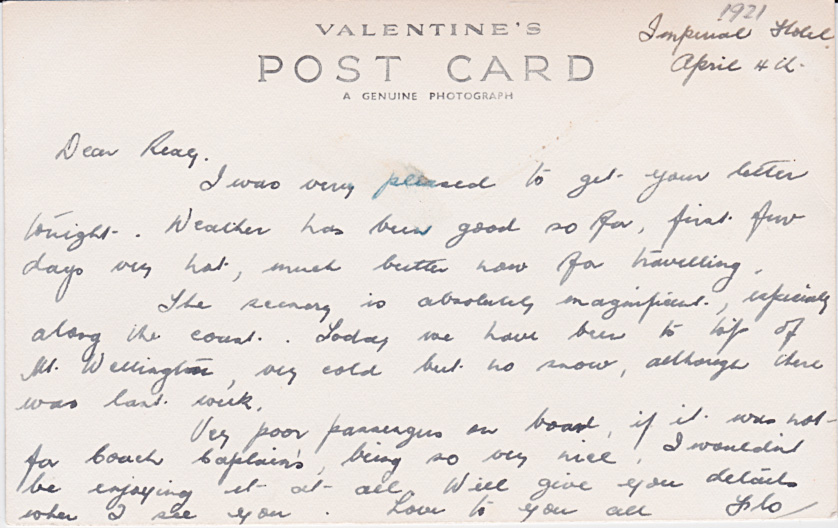 1921
VALENTINE'S
Imperial Hotel
POST CARD
April 4th
A GENUINE PHOTOGRAPH
Dear
I was very pleased to get your letter
tonight. Weather has been good so far, first few
days very hot, much better now for travelling.
The scenery is absolutely magnificent, especially
along the coast. Today we have been to top of
Mt. Wellington, very cold but no snow, although there
was last week.
Very poor passengers on board, if it was not
for Coach Captain's, being so very nice, I wouldn't
be enjoying it at all. Will give you details
when I see you. Love to you all Flo